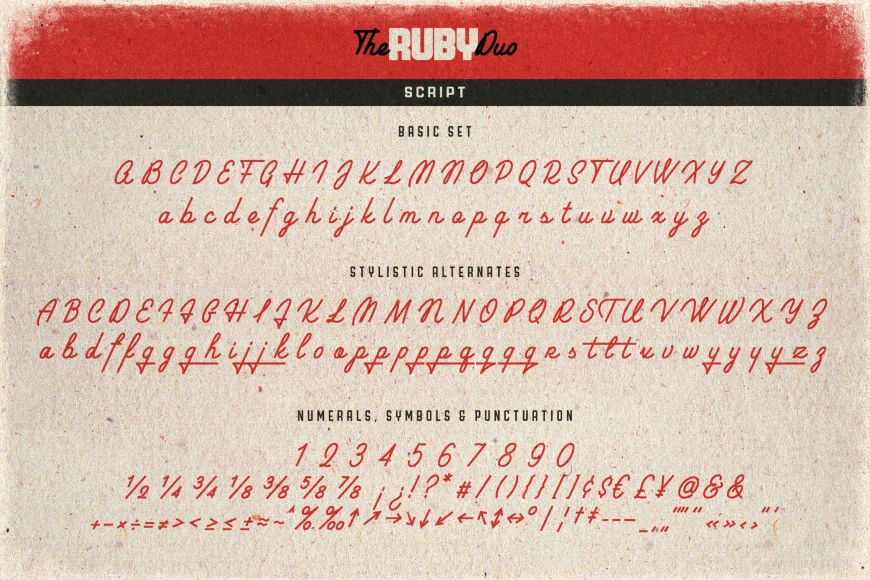 The RUBY Duo
SCRIPT
BASIC SET
A B C D E F G H I J K L M N O P Q R S T U V W X Y Z
a b c d e f g h i j k l m n o p q r s t u v w x y z
STYLISTIC ALTERNATES
A B C D E F F G H I J K L M M N N O P Q R S T U V W W X Y Z
a b d f f g g g h i j j k l o o p p p p p p q q q q q r s t t t u v w y y y y y z z
NUMERALS, SYMBOLS & PUNCTUATION
1 2 3 4 5 6 7 8 9 0
½ ¼ ¾ ⅛ ⅜ ⅝ ⅞ ¡ ¿ ! ? * # / ( ) { } [ ] ¢ $ € £ ¥ @ & &
+ − × ÷ = ≠ > < ≥ ≤ ± ≈ ~ ^ % ‰ ↑ ↗ → ↘ ↓ ↙ ← ↖ ↕ ↔ ° | ¦ † ‡